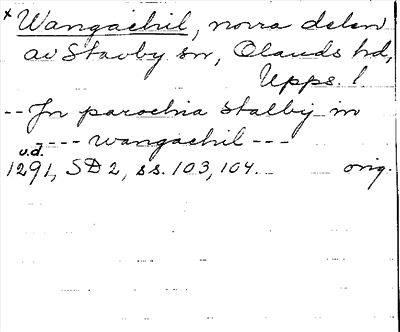 x Wangaehil, norra delen
av Stavby sn, Olands hd,
Upps. l
-- In parochia Stalby in
---- wangaehil ---
u.å.
1291, SD 2, ss. 103, 104. orig.